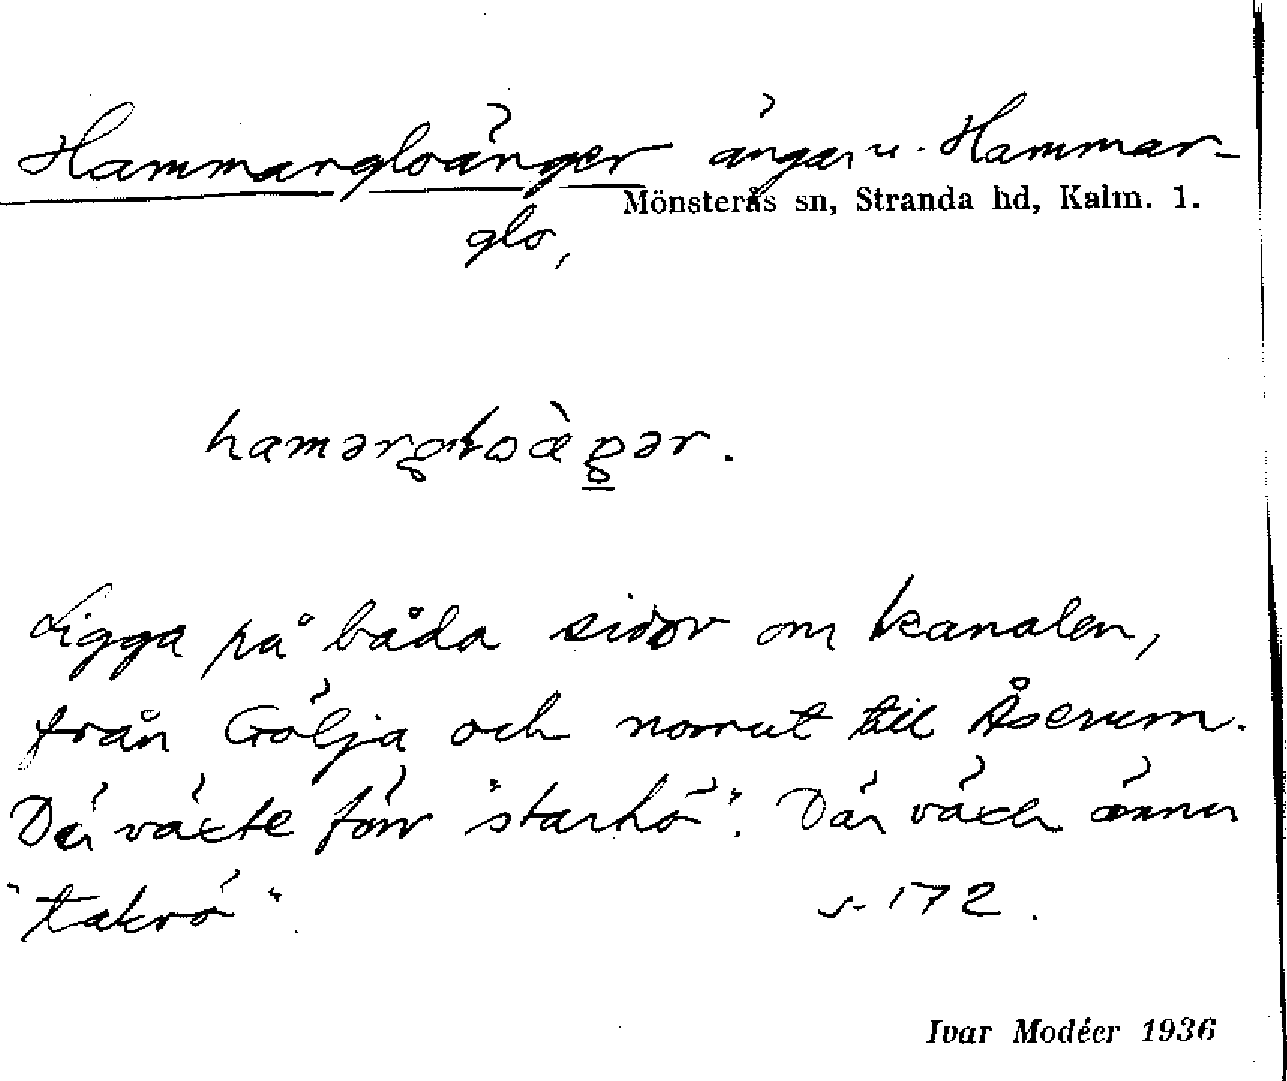 Hammargloänger ängar u. Hammar-
Mönsterås sn, Stranda hd, Kalm. l.
glo,
hamərgloæ̀ŋər.
Ligga på båda sidor om kanalen,
från Gölja och norrut till Åserum.
Där växte förr "starhö". Där växer ännu
"takrö".
s. 172.
Ivar Modéer 1936